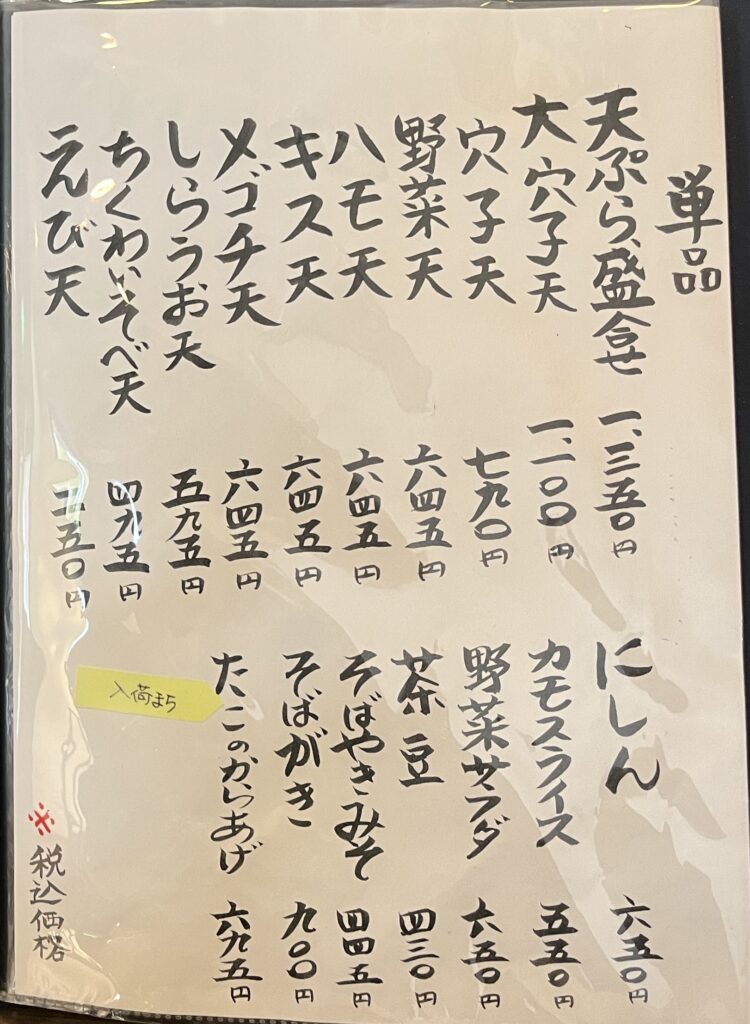 単品
天ぷら盛合せ 一、三五〇円
大穴子天 一、一〇〇円
穴子天 七九〇円
野菜天 六四五円
ハモ天 六四五円
キス天 六四五円
メゴチ天 六四五円
しらうお天 五九五円
ちくわいそべ天 四九五円
えび天 三五〇円
にしん 六五〇円
カモスライス 五五〇円
野菜サラダ 六五〇円
茶豆 四三〇円
そばやきみそ 四四五円
そばがき 九〇〇円
たこのからあげ 六九五円
入荷まち
※税込価格